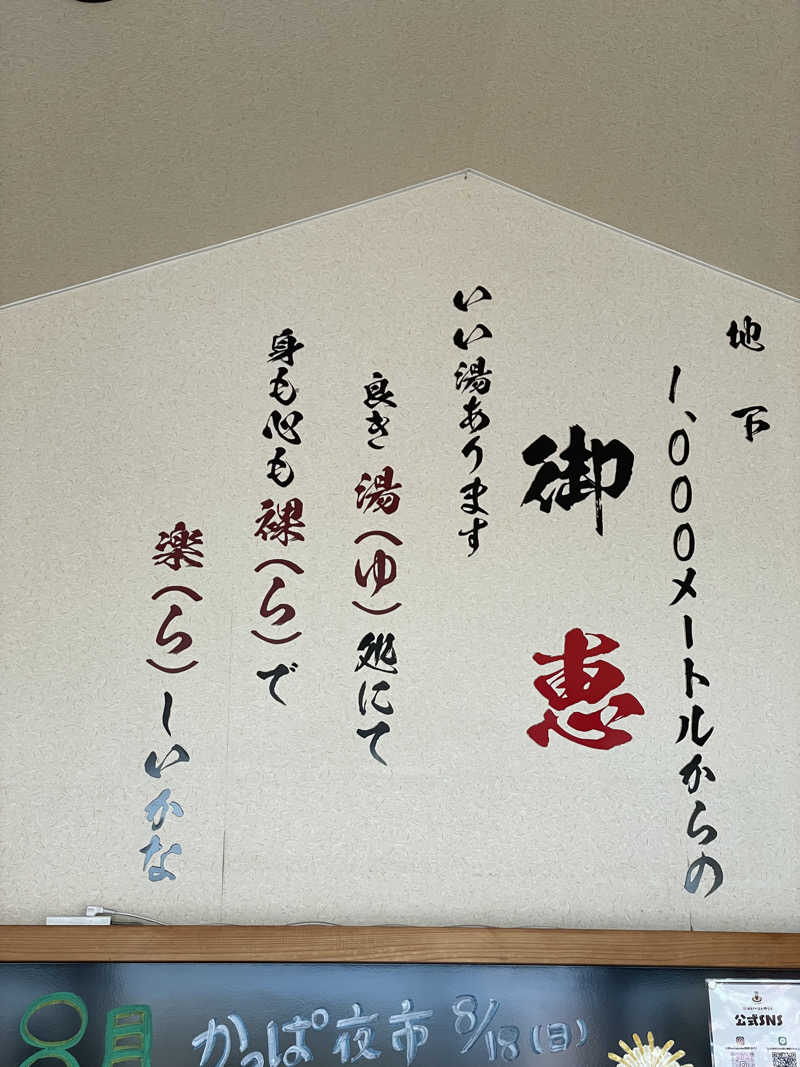 地下
1,000メートルからの
御恵
いい湯あります
良き湯(ゆ)処にて
身も心も裸(ら)で
楽(ら)しいかな
8月
かっぱ夜市 8/18(日)
公式SNS